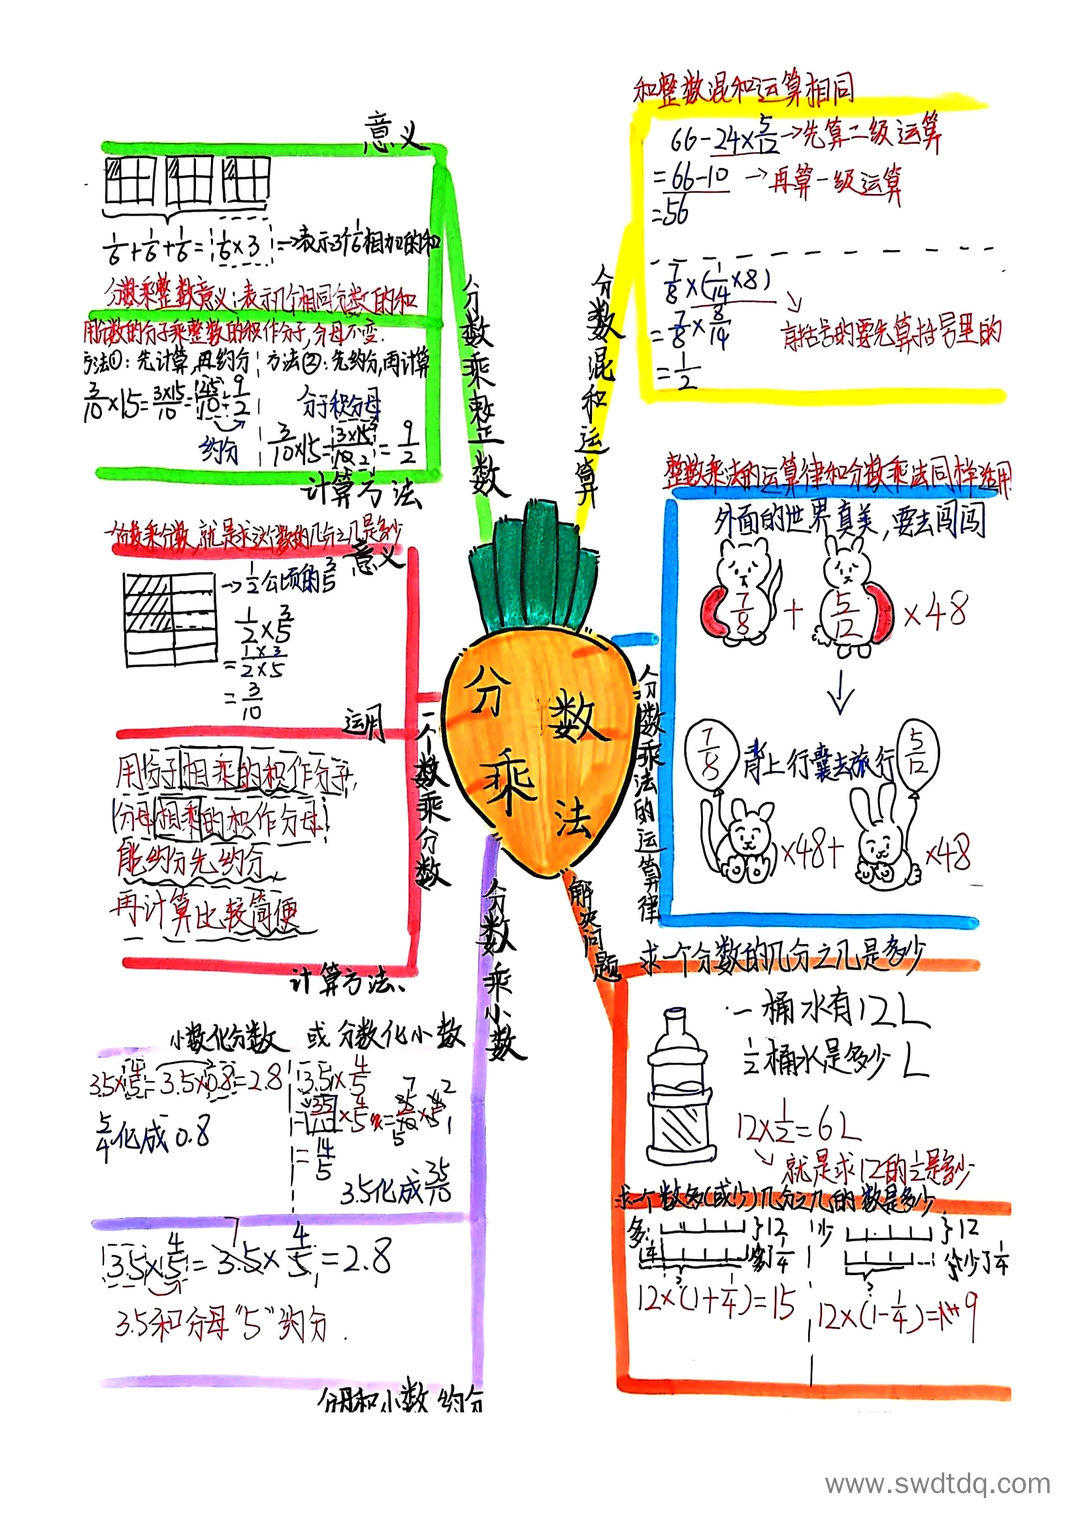 分数乘法
分数乘整数
意义
1/6+1/6+1/6=1/6×3→表示3个1/6相加的和
分数乘整数意义:表示几个相同分数的和
用分数的分子乘整数的积作分子,分母不变.
方法①:先计算,再约分
3/10×15=3×15/10=45/10=9/2
约分
方法②:先约分,再计算
分子积分母
3/10×15=3×15/10=9/2
计算方法
一个数乘分数
分数乘分数,就是求这个数的几分之几是多少
意义
→1/2公顷的3/5
1/2×3/5
=1×3/2×5
=3/10
运用
用分子相乘的积作分子,
分母相乘的积作分母,
能约分先约分,
再计算比较简便
计算方法、
分数乘小数
小数化分数 或分数化小数
3.5×4/5=3.5×0.8=2.8
5/4化成0.8
3.5×4/5
=35/10×4/5=35/10×4/5
=14/5
3.5化成35/10
3.5×4/5=3.5×4/5=2.8
3.5和分母"5"约分.
分母和小数约分
分数混和运算
和整数混和运算相同
66-24×5/12→先算二级运算
=66-10→再算一级运算
=56
7/8×(1/14×8)
=7/8×8/14
有括号的要先算括号里的
=1/2
分数乘法的运算律
整数乘法的运算律和分数乘法同样适用
外面的世界真美,要去闯闯
7/8+5/12×48
7/8 背上行囊去旅行 5/12
×48+ ×48
解决问题
求一个分数的几分之几是多少
一桶水有12L
1/2桶水是多少L
12×1/2=6L
就是求12的1/2是多少
求一个数多(或少)几分之几的数是多少
多: }12 少 }12
多了1/4 少了1/4
? ?
12×(1+1/4)=15
12×(1-1/4)=9
www.swdtdq.com